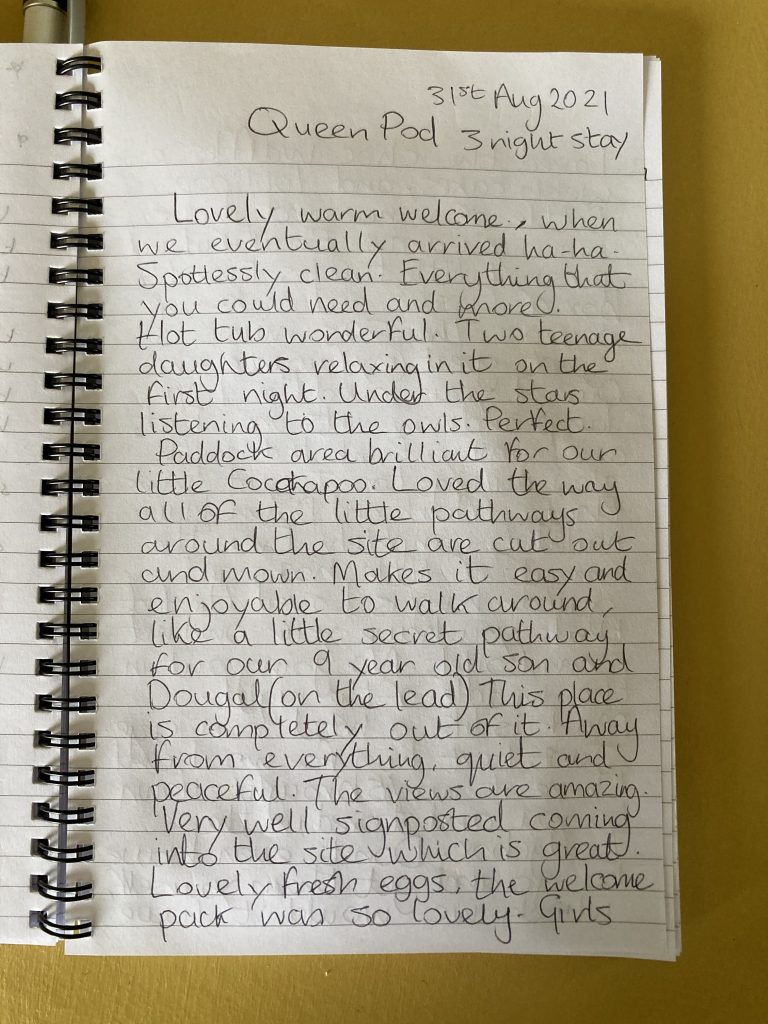 31st Aug 2021
Queen Pod 3 night stay
Lovely warm welcome, when
we eventually arrived ha-ha.
Spotlessly clean. Everything that
you could need and more.
Hot tub wonderful. Two teenage
daughters relaxing in it on the
first night. Under the stars
listening to the owls. Perfect.
Paddock area brilliant for our
little Cockapoo. Loved the way
all of the little pathways
around the site are cut out
and mown. Makes it easy and
enjoyable to walk around,
like a little secret pathway
for our 9 year old son and
Dougal (on the lead) This place
is completely out of it. Away
from everything, quiet and
peaceful. The views are amazing.
Very well signposted coming
into the site which is great.
Lovely fresh eggs, the welcome
pack was so lovely. Girls